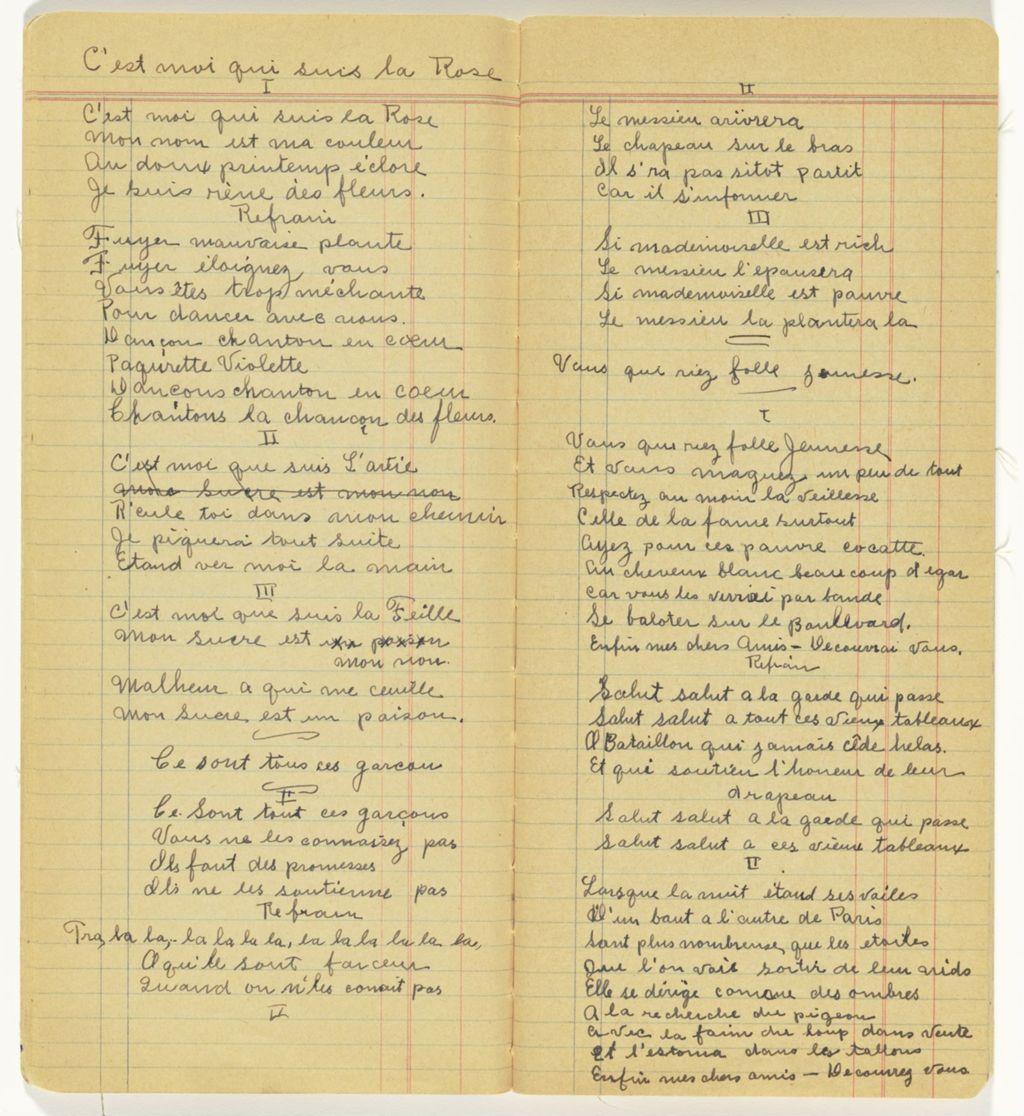 C'est moi qui suis la Rose
I
C'est moi qui suis la Rose
Mon nom est ma couleur
Au doux printemp éclore
Je suis rène des fleurs.
Refrain
Fuyer mauvaise plante
Fuyer éloignez vous
Vous êtes trop méchante
Pour dancer avec nous.
Dançon chanton en coeur
Paqurette Violette
Dançons chanton en coeur
Chantons la chançon des fleurs.
II
C'est moi que suis L'artie
sucre est mon non
R'cule toi dans mon chemin
Je piquerai tout suite
Etand ver moi la main
III
C'est moi que suis la Feille
Mon sucre est un poison
mon non.
Malheur a qui me ceuille
Mon Sucre est un paison.
Ce sont tous ces garçon
I
Ce Sont tout ces garçons
Vous ne les connaisez pas
Ils font des promesses
Ils ne les soutienne pas
Refrain
Tra la la, la la la la, la la la la la la,
O qu'ile sont farceur
Quand on n'les conait pas
II
II
Le messieu arivrera
Le chapeau sur le bras
Il s'ra pas sitot partit
Car il s'informer
III
Si mademoiselle est rich
Le messieu l'epausera
Si mademoiselle est pauvre
Le messieu la plantera la
Vous que riez folle jeunesse.
I
Vous qui riez folle Jeunesse
Et vous maquez un peu de tout
Respectez au moin la veillesse
Celle de la fame surtout
Ayez pour ces pauvre cocatte.
Au cheveux blanc beaucoup d'egar
Car vous les verrai par bande
Se baloter sur le Boullevard.
Enfin mes chers Amis – Decouvrai Vous.
Refrain
Salut salut a la garde qui passe
Salut salut a tout ces vieux tableaux
O Bataillon qui jamais cède helas.
Et qui soutien l'honeur de leur
drapeau
Salut salut a la garde qui passe
Salut salut a ces vieux tableaux
II
Lorsque la nuit étand ses vailes
D'un baut a l'autre de Paris
Sont plus nombreuse que les etoiles
Que l'on vait sortir de leur nids
Elle se dérige comme des ombres
A la recherche du pigeon
Avec la faim du loup dans vente
Et l'estoma dans les tallons
Enfin mes chers amis – Decouvrez vous